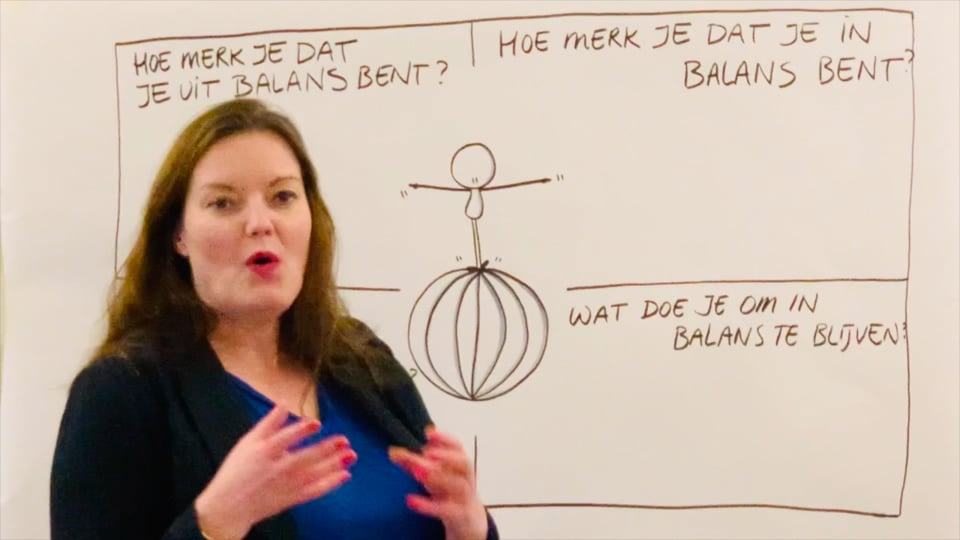 HOE MERK JE DAT
JE UIT BALANS BENT?
HOE MERK JE DAT JE IN
BALANS BENT?
WAT DOE JE OM IN
BALANS TE BLIJVEN?
?